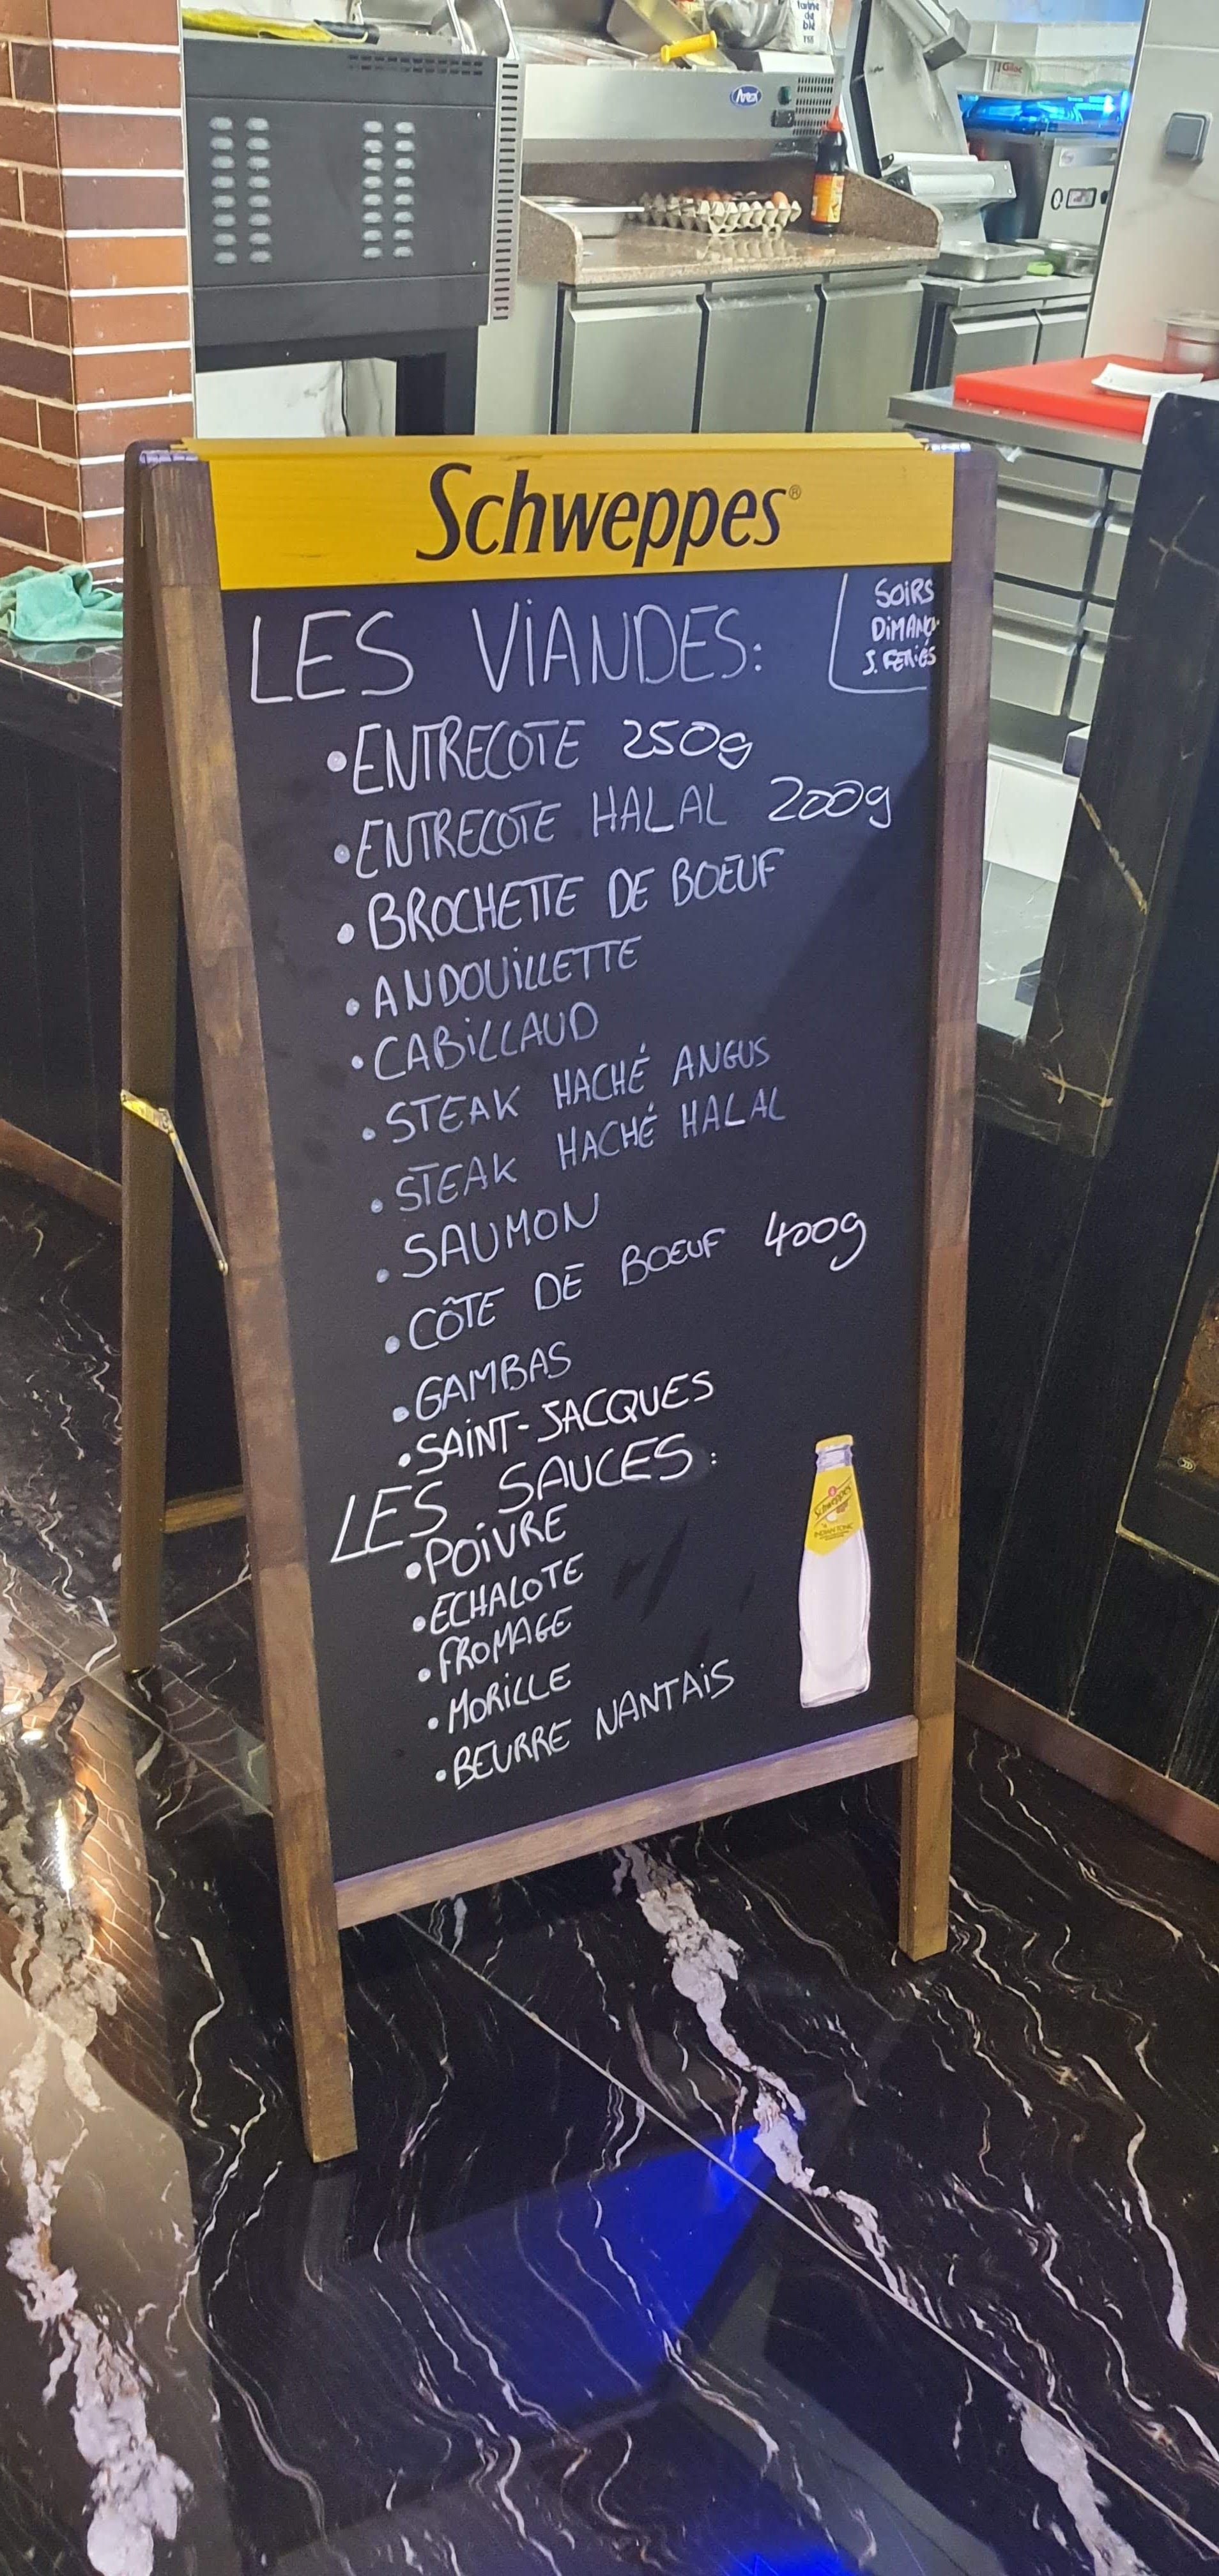 farine
de
blé
Schweppes®
LES VIANDES:
SOIRS
DIMANC
J. FERIÉS
• ENTRECOTE 250g
• ENTRECOTE HALAL 200g
• BROCHETTE DE BOEUF
• ANDOUILLETTE
• CABILLAUD
• STEAK HACHÉ ANGUS
• STEAK HACHÉ HALAL
• SAUMON
• CÔTE DE BOEUF 400g
• GAMBAS
• SAINT-JACQUES
LES SAUCES:
• POIVRE
• ECHALOTE
• FROMAGE
• MORILLE
• BEURRE NANTAIS
Schweppes
INDIAN TONIC